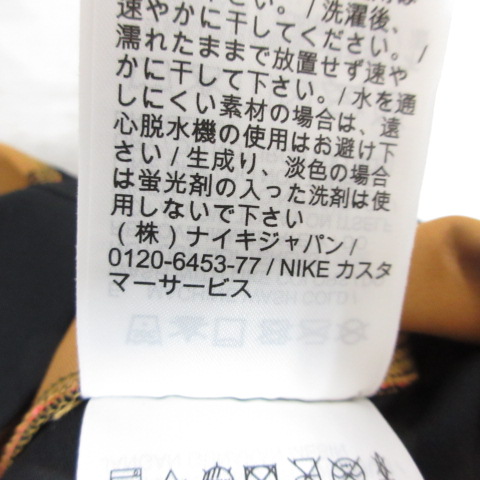 さい。/ 洗濯後、
速やかに干してください。/
濡れたままで放置せず速や
かに干して下さい。/ 水を通
しにくい素材の場合は、遠
心脱水機の使用はお避け下
さい / 生成り、淡色の場合
は蛍光剤の入った洗剤は使
用しないで下さい
(株) ナイキジャパン /
0120-6453-77 / NIKE カスタ
マーサービス